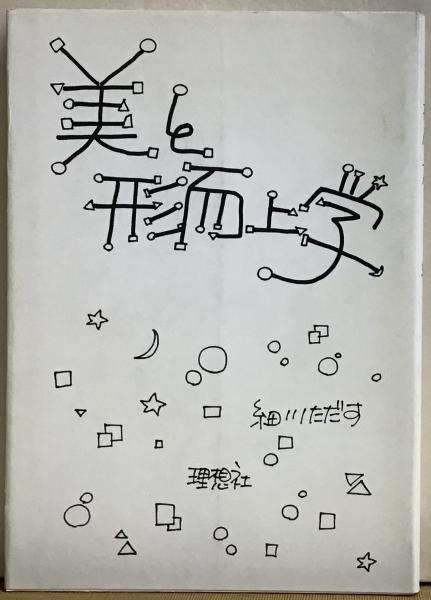 美と
形而上学
細川ただす
理想社